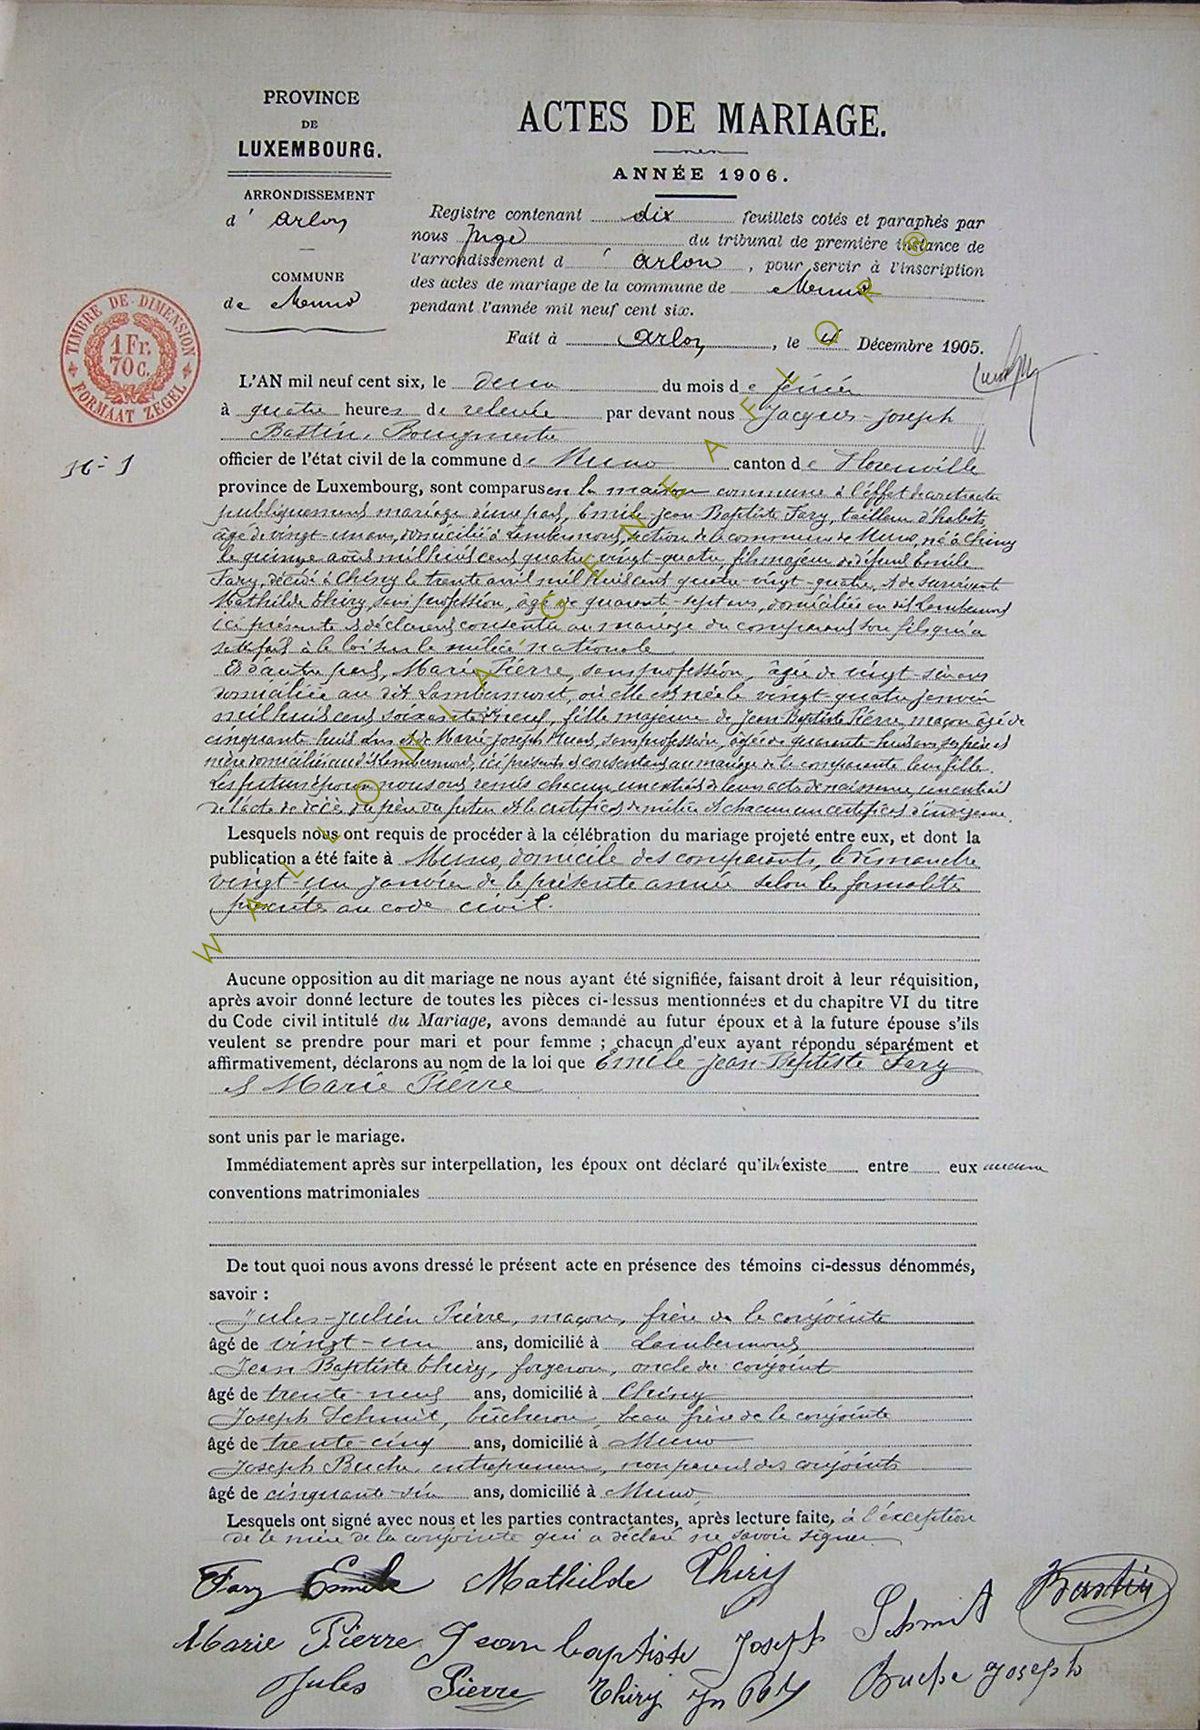 PROVINCE
DE
LUXEMBOURG.
ARRONDISSEMENT
d' Arlon
COMMUNE
de Muno
TIMBRE DE DIMENSION
1 Fr.
70 c.
FORMAAT ZEGEL
ACTES DE MARIAGE.
ANNÉE 1906.
Registre contenant dix feuillets cotés et paraphés par
nous Juge du tribunal de première instance de
l'arrondissement d' Arlon, pour servir à l'inscription
des actes de mariage de la commune de Muno
pendant l'année mil neuf cent six.
Fait à Arlon, le Décembre 1905.
L'AN mil neuf cent six, le deux du mois de février
à quatre heures de relevée par devant nous Jacques-Joseph
Bastin, Bourgmestre
officier de l'état civil de la commune de Muno canton de Florenville
province de Luxembourg, sont comparus en la maison commune à l'effet de contracter
publiquement mariage d'une part, Emile-Jean-Baptiste Fary, tailleur d'habits,
âgé de vingt-un ans, domicilié à Lambermont, section de la commune de Muno, né à Chiny
le quinze août mil huit cent quatre-vingt-quatre, fils majeur de défunt Emile
Fary, décédé à Chiny le trente avril mil huit cent quatre-vingt-quatre, et de survivante
Mathilde Thiry, sans profession, âgée de quarante-sept ans, domiciliée au dit Lambermont
ici présente et déclarant consentir au mariage du comparant son fils qui a
satisfait à la loi sur la milice nationale
Et d'autre part, Marie Pierre, sans profession, âgée de vingt-six ans
domiciliée au dit Lambermont, où elle est née le vingt-quatre janvier
mil huit cent soixante dix neuf, fille majeure de Jean-Baptiste Pierre, maçon âgé de
cinquante-huit ans et de Marie-Joseph sans profession, âgée de quarante-huit ans, ses père et
mère domiciliés au dit Lambermont, ici présents et consentant au mariage de la comparante leur fille.
Les futurs époux nous ont remis chacun, un extrait de leurs acte de naissance, un extrait
de l'acte de décès du père du futur et le certificat de milice et chacun un certificat d'indigence.
Lesquels nous ont requis de procéder à la célébration du mariage projeté entre eux, et dont la
publication a été faite à Muno, domicile des comparants, le dimanche
vingt-un janvier de la présente année selon les formalités
prescrites au code civil.
Aucune opposition au dit mariage ne nous ayant été signifiée, faisant droit à leur réquisition,
après avoir donné lecture de toutes les pièces ci-dessus mentionnées et du chapitre VI du titre
du Code civil intitulé du Mariage, avons demandé au futur époux et à la future épouse s'ils
veulent se prendre pour mari et pour femme ; chacun d'eux ayant répondu séparément et
affirmativement, déclarons au nom de la loi que Emile-Jean-Baptiste Fary
et Marie Pierre
sont unis par le mariage.
Immédiatement après sur interpellation, les époux ont déclaré qu'il n'existe entre eux aucune
conventions matrimoniales
De tout quoi nous avons dressé le présent acte en présence des témoins ci-dessus dénommés,
savoir :
Jules-Julien Pierre, maçon, frère de la conjointe
âgé de vingt-un ans, domicilié à Lambermont
Jean Baptiste Thiry, forgeron, oncle du conjoint
âgé de trente-neuf ans, domicilié à Chiny
Joseph Schmit, bûcheron, beau frère de la conjointe
âgé de trente-cinq ans, domicilié à Muno
Joseph Buche, entrepreneur, non parent des conjoints
âgé de cinquante-six ans, domicilié à Muno
Lesquels ont signé avec nous et les parties contractantes, après lecture faite, à l'exception
de la mère de la conjointe qui a déclaré ne savoir signer
Fary Emile Mathilde Thiry
Bastin
Marie Pierre Jean baptiste Joseph Schmit
Jules Pierre Thiry Buche Joseph